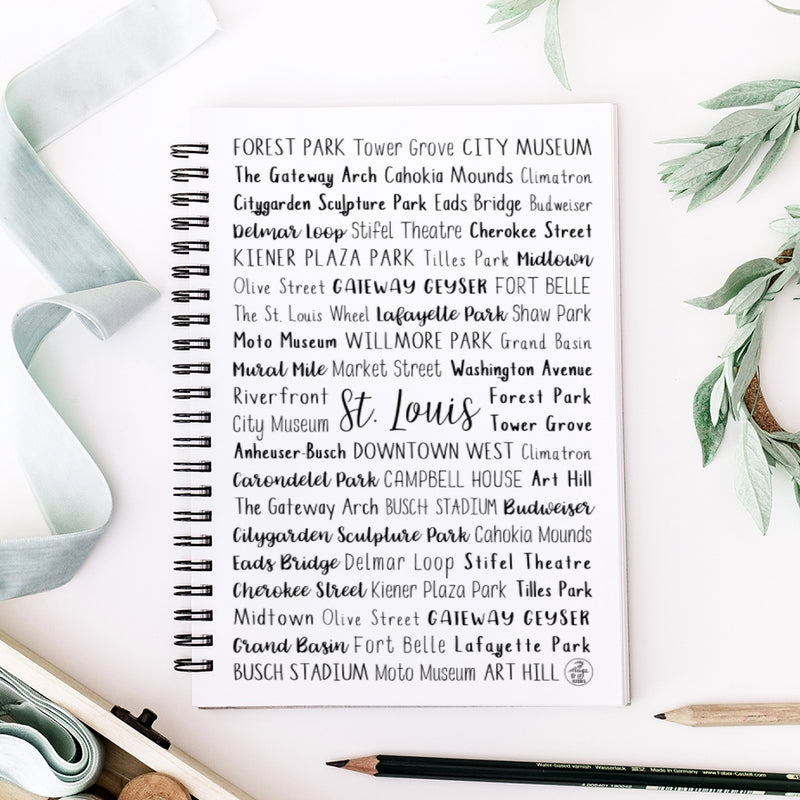 FOREST PARK Tower Grove CITY MUSEUM
The Gateway Arch Cahokia Mounds Climatron
Citygarden Sculpture Park Eads Bridge Budweiser
Delmar Loop Stifel Theatre Cherokee Street
KIENER PLAZA PARK Tilles Park Midtown
Olive Street GATEWAY GEYSER FORT BELLE
The St. Louis Wheel Lafayette Park Shaw Park
Moto Museum WILLMORE PARK Grand Basin
Mural Mile Market Street Washington Avenue
Riverfront Forest Park
St. Louis
City Museum Tower Grove
Anheuser-Busch DOWNTOWN WEST Climatron
Carondelet Park CAMPBELL HOUSE Art Hill
The Gateway Arch BUSCH STADIUM Budweiser
Citygarden Sculpture Park Cahokia Mounds
Eads Bridge Delmar Loop Stifel Theatre
Cherokee Street Kiener Plaza Park Tilles Park
Midtown Olive Street GATEWAY GEYSER
Grand Basin Fort Belle Lafayette Park
BUSCH STADIUM Moto Museum ART HILL
Water-based varnish Wasserlack Made in Germany www.Faber-Castell.com